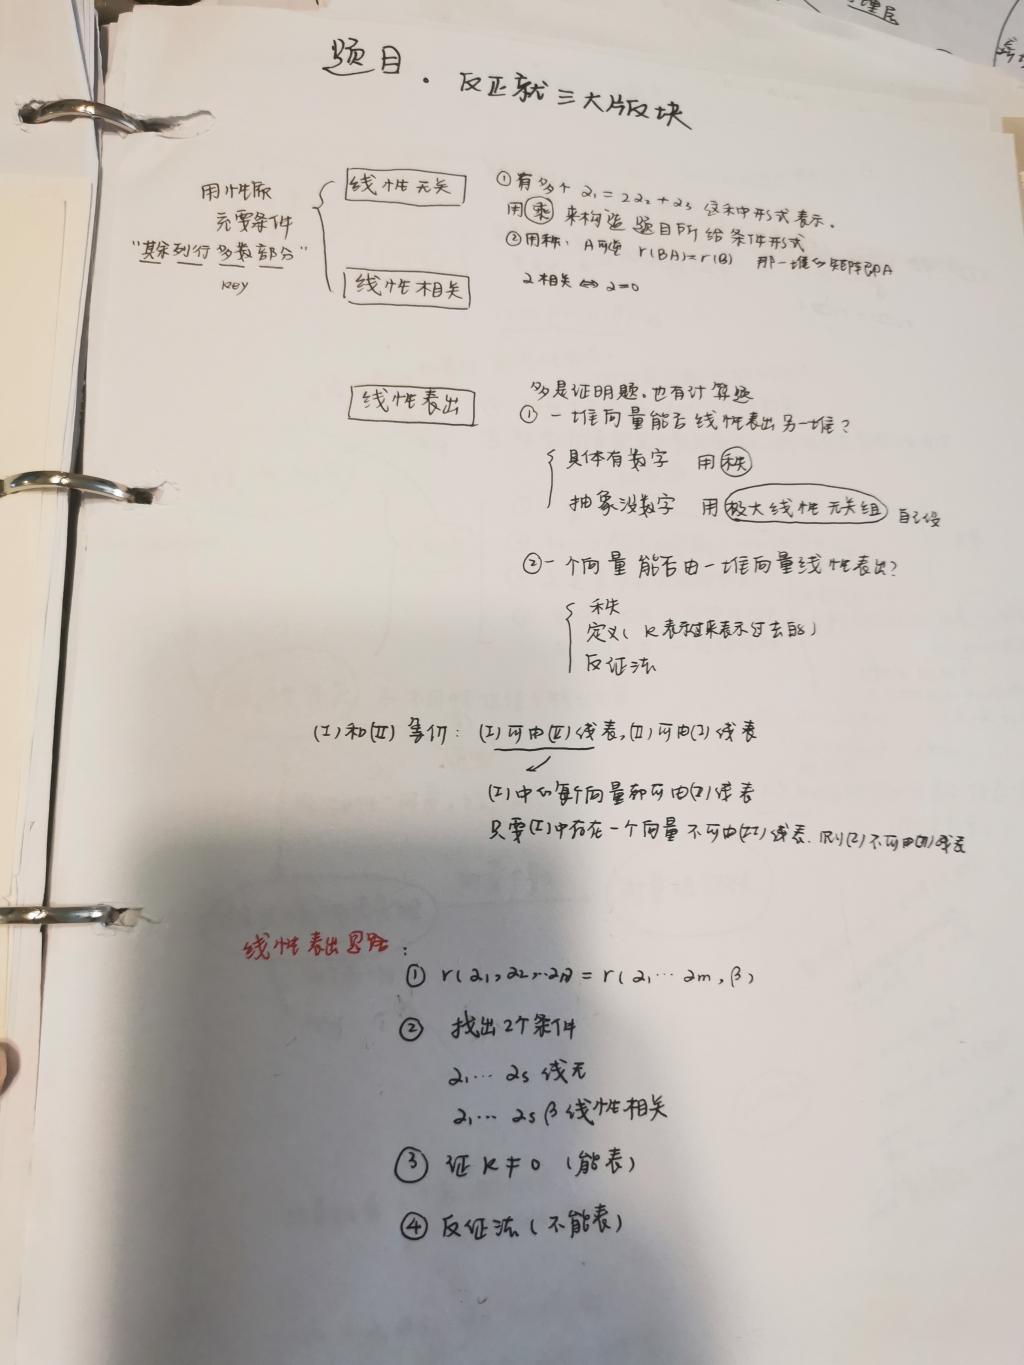 题目. 反正就三大版块
用性质
充要条件
"其余列行多数部分"
key
线性无关
① 有多个 α₁=2α₂+α₃ 这种形式表示.
用乘来构造题目所给条件形式
②用秩: A可逆 r(BA)=r(B) 那一堆的矩阵即A
线性相关
α相关⇔α=0
线性表出
多是证明题.也有计算题
① 一堆向量能否线性表出另一堆?
具体有数字 用秩
抽象没数字 用极大线性无关组 自己设
②一个向量能否由一堆向量线性表出?
秩
定义( k表示过来表示过去的)
反证法
(I)和(II)等价: (I)可由(II)线表,(II)可由(I)线表
(I)中的每个向量都可由(II)线表
只要(I)中存在一个向量不可由(II)线表.则(I)不可由(II)线表
线性表出思路:
① r(α₁,α₂,…αm)=r(α₁…αm,β)
② 找出2个条件
α₁…αs 线无
α₁…αs β 线性相关
③ 证 k≠0 (能表)
④ 反证法(不能表)